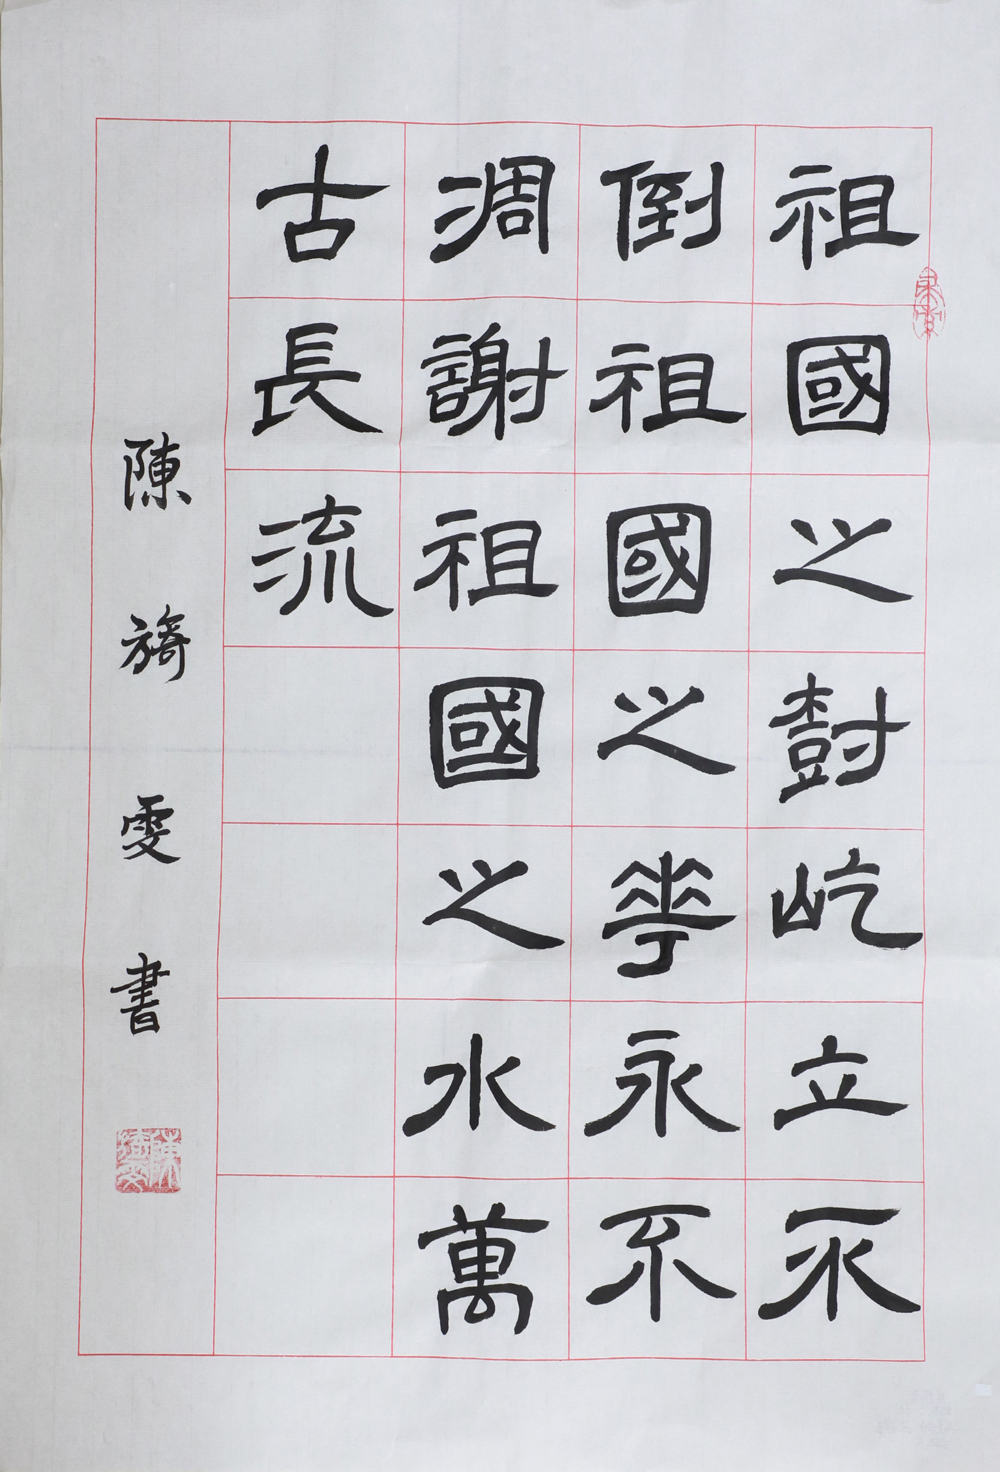 祖國之尌屹立不
倒祖國之華永不
凋謝祖國之水萬
古長流
陳旖雯書
陳旖雯